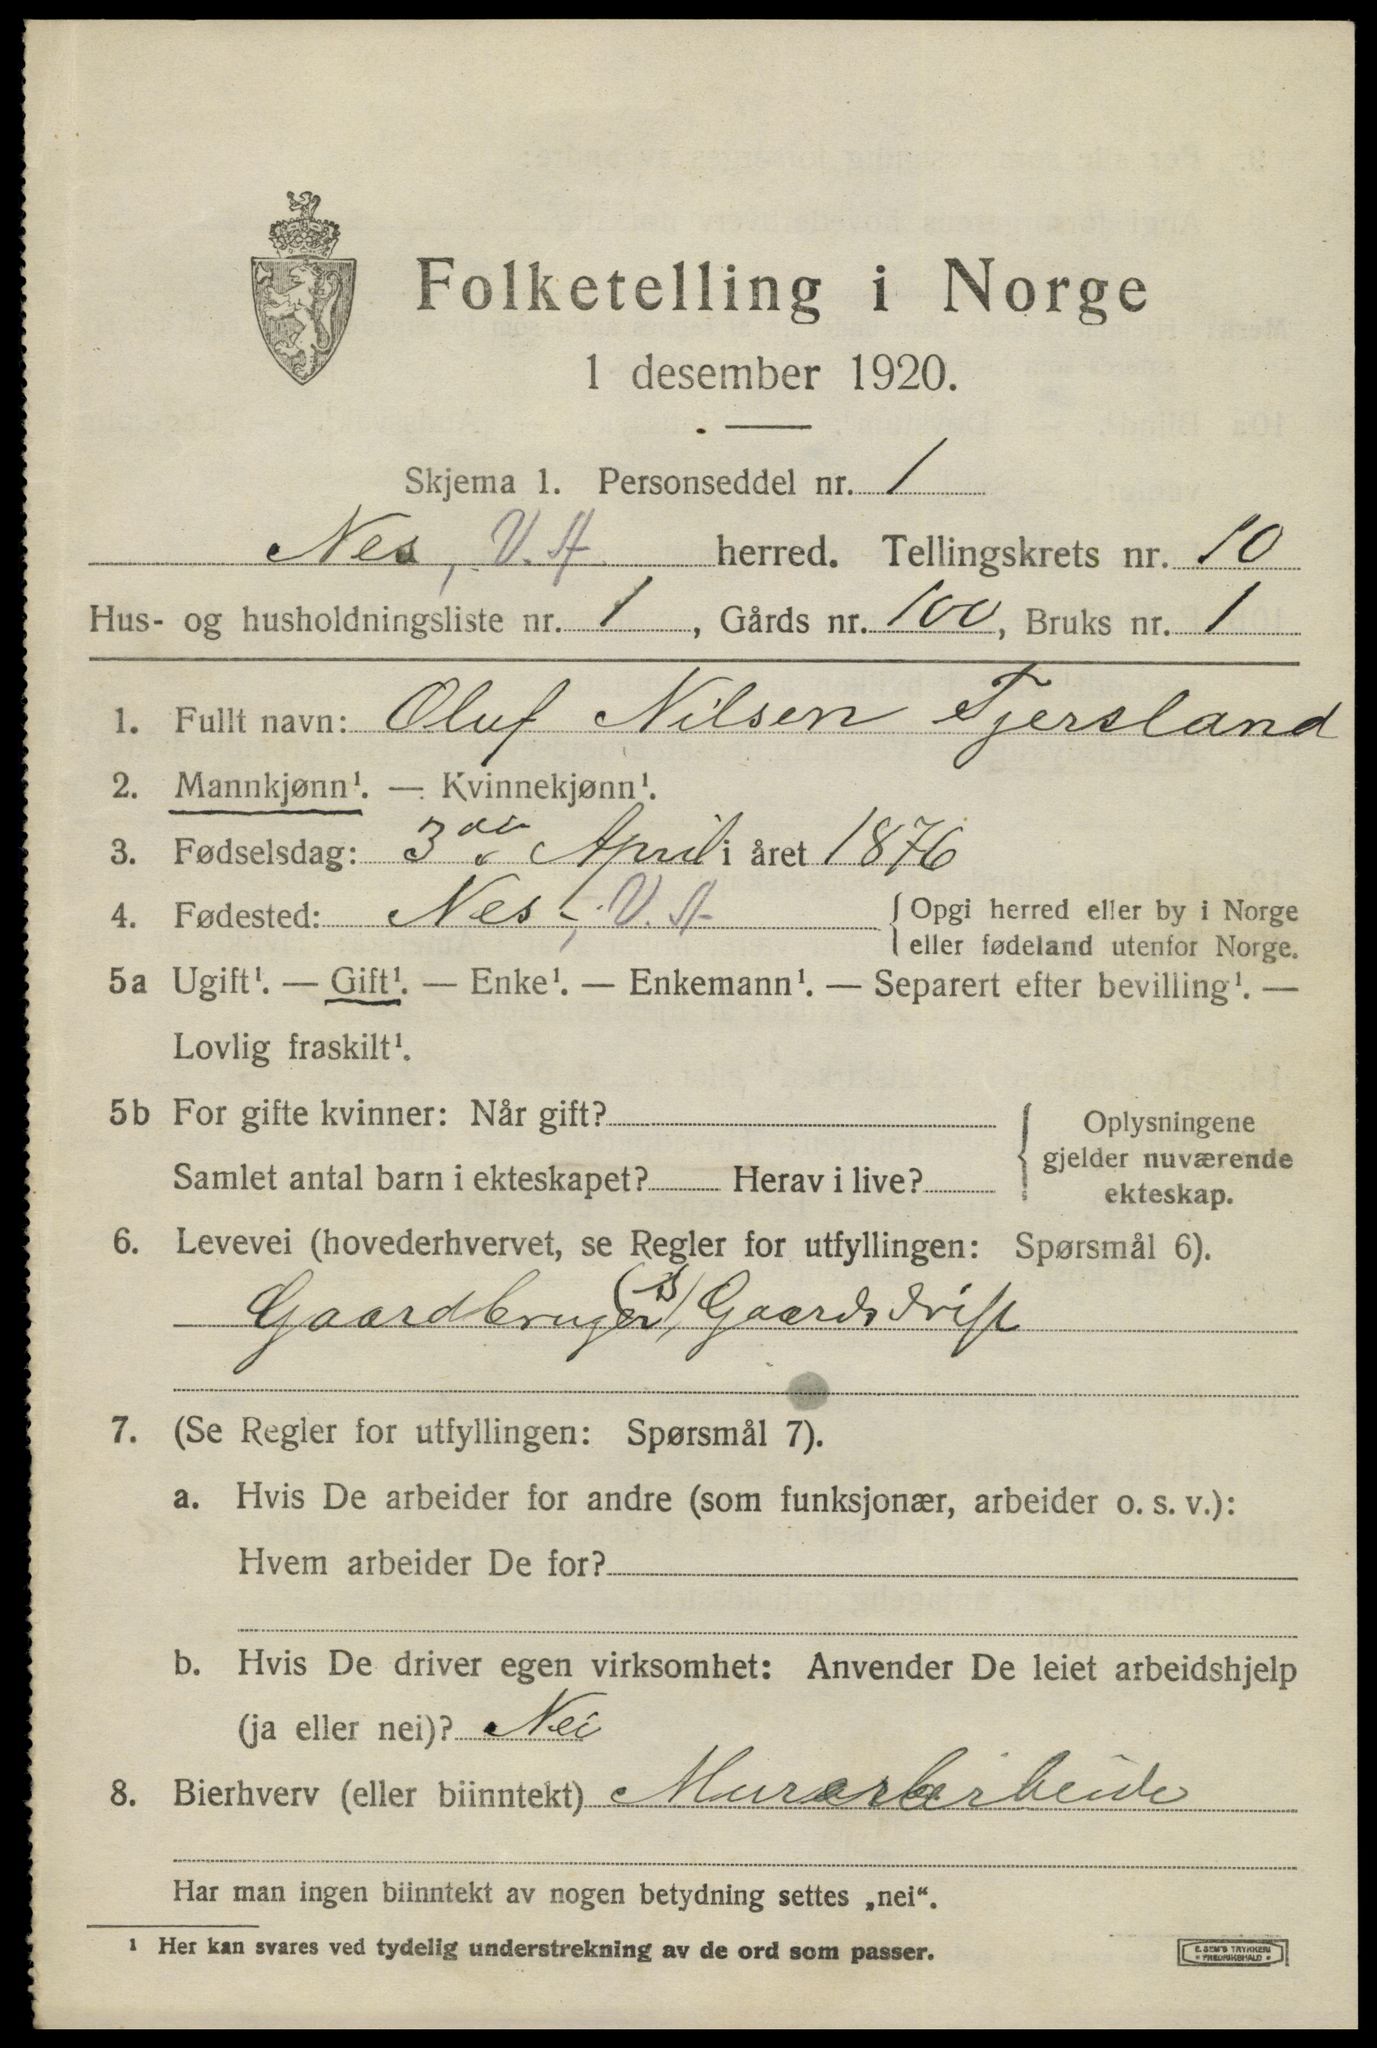 Folketelling i Norge
1 desember 1920.
Skjema 1. Personseddel nr. 1
Nes, V.A. herred. Tellingskrets nr. 10
Hus- og husholdningsliste nr. 1, Gårds nr. 100, Bruks nr. 1
1. Fullt navn: Oluf Nilsen Tjersland
2. Mannkjønn¹. — Kvinnekjønn¹.
3. Fødselsdag: 3die April i året 1876
4. Fødested: Nes, V.A. { Opgi herred eller by i Norge
eller fødeland utenfor Norge.
5a Ugift¹. — Gift¹. — Enke¹. — Enkemann¹. — Separert efter bevilling¹. —
Lovlig fraskilt¹.
5b For gifte kvinner: Når gift?
Samlet antal barn i ekteskapet? Herav i live?
{ Oplysningene
gjelder nuværende
ekteskap.
6. Levevei (hovederhvervet, se Regler for utfyllingen: Spørsmål 6).
Gaardbruger (s), Gaardsdrift
7. (Se Regler for utfyllingen: Spørsmål 7).
a. Hvis De arbeider for andre (som funksjonær, arbeider o. s. v.):
Hvem arbeider De for?
b. Hvis De driver egen virksomhet: Anvender De leiet arbeidshjelp
(ja eller nei)? Nei
8. Bierhverv (eller biinntekt) Murerarbeide
Har man ingen biinntekt av nogen betydning settes „nei“.
¹ Her kan svares ved tydelig understrekning av de ord som passer.
E. SEM'S TRYKKERI
FREDRIKSHALD